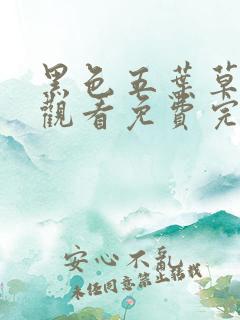 黑色五葉草
觀看免費完
安心不亂
未经同意禁止转载